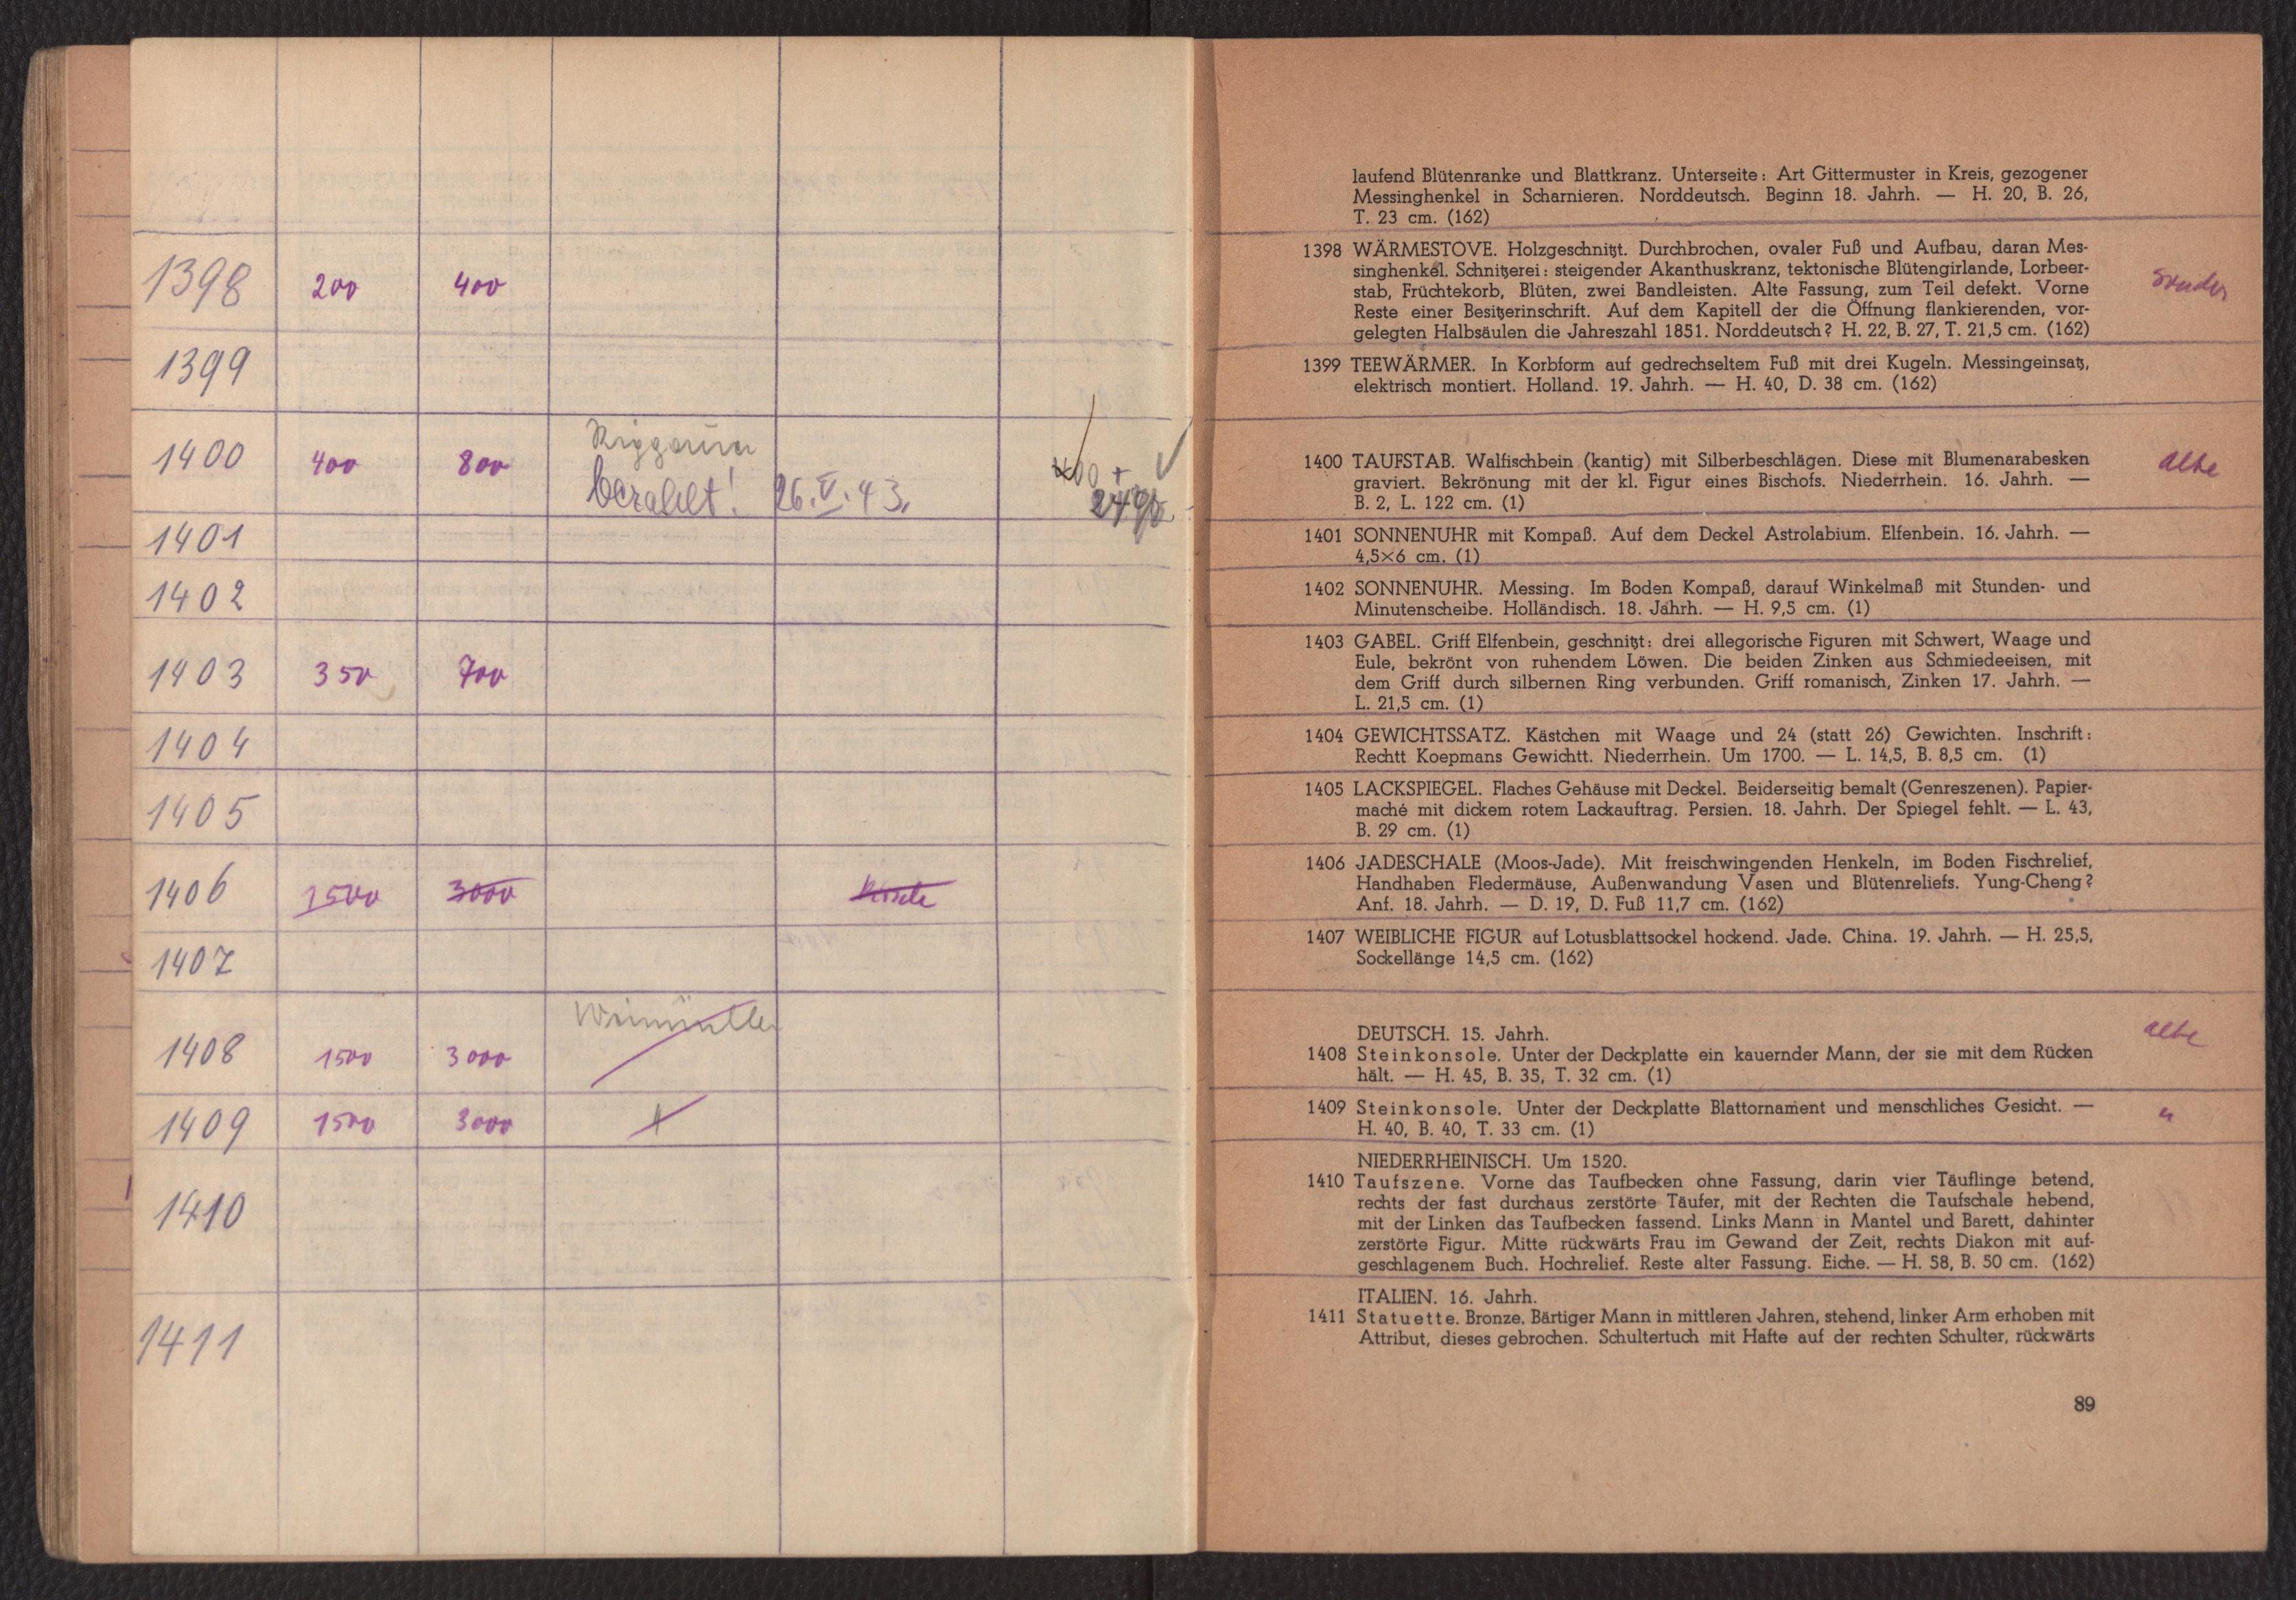 1398 200 400
1399
1400 400 800
bezahlt! 26.V.43.
1401
1402
1403 350 700
1404
1405
1406 1500 3000
1407
Weinmüller
1408 1500 3000
1409 1500 3000
1410
1411
laufend Blütenranke und Blattkranz. Unterseite: Art Gittermuster in Kreis, gezogener
Messinghenkel in Scharnieren. Norddeutsch. Beginn 18. Jahrh. — H. 20, B. 26,
T. 23 cm. (162)
1398 WÄRMESTOVE. Holzgeschnitzt. Durchbrochen, ovaler Fuß und Aufbau, daran Mes-
singhenkel. Schnitzerei: steigender Akanthuskranz, tektonische Blütengirlande, Lorbeer-
stab, Früchtekorb, Blüten, zwei Bandleisten. Alte Fassung, zum Teil defekt. Vorne
Reste einer Besitzerinschrift. Auf dem Kapitell der die Öffnung flankierenden, vor-
gelegten Halbsäulen die Jahreszahl 1851. Norddeutsch? H. 22, B. 27, T. 21,5 cm. (162)
1399 TEEWÄRMER. In Korbform auf gedrechseltem Fuß mit drei Kugeln. Messingeinsatz,
elektrisch montiert. Holland. 19. Jahrh. — H. 40, D. 38 cm. (162)
1400 TAUFSTAB. Walfischbein (kantig) mit Silberbeschlägen. Diese mit Blumenarabesken
graviert. Bekrönung mit der kl. Figur eines Bischofs. Niederrhein. 16. Jahrh. —
B. 2, L. 122 cm. (1)
1401 SONNENUHR mit Kompaß. Auf dem Deckel Astrolabium. Elfenbein. 16. Jahrh. —
4,5×6 cm. (1)
1402 SONNENUHR. Messing. Im Boden Kompaß, darauf Winkelmaß mit Stunden- und
Minutenscheibe. Holländisch. 18. Jahrh. — H. 9,5 cm. (1)
1403 GABEL. Griff Elfenbein, geschnitzt: drei allegorische Figuren mit Schwert, Waage und
Eule, bekrönt von ruhendem Löwen. Die beiden Zinken aus Schmiedeeisen, mit
dem Griff durch silbernen Ring verbunden. Griff romanisch, Zinken 17. Jahrh. —
L. 21,5 cm. (1)
1404 GEWICHTSSATZ. Kästchen mit Waage und 24 (statt 26) Gewichten. Inschrift:
Rechtt Koepmans Gewichtt. Niederrhein. Um 1700. — L. 14,5, B. 8,5 cm. (1)
1405 LACKSPIEGEL. Flaches Gehäuse mit Deckel. Beiderseitig bemalt (Genreszenen). Papier-
maché mit dickem rotem Lackauftrag. Persien. 18. Jahrh. Der Spiegel fehlt. — L. 43,
B. 29 cm. (1)
1406 JADESCHALE (Moos-Jade). Mit freischwingenden Henkeln, im Boden Fischrelief,
Handhaben Fledermäuse, Außenwandung Vasen und Blütenreliefs. Yung-Cheng?
Anf. 18. Jahrh. — D. 19, D. Fuß 11,7 cm. (162)
1407 WEIBLICHE FIGUR auf Lotusblattsockel hockend. Jade. China. 19. Jahrh. — H. 25,5,
Sockellänge 14,5 cm. (162)
DEUTSCH. 15. Jahrh.
1408 Steinkonsole. Unter der Deckplatte ein kauernder Mann, der sie mit dem Rücken
hält. — H. 45, B. 35, T. 32 cm. (1)
1409 Steinkonsole. Unter der Deckplatte Blattornament und menschliches Gesicht. —
H. 40, B. 40, T. 33 cm. (1)
NIEDERRHEINISCH. Um 1520.
1410 Taufszene. Vorne das Taufbecken ohne Fassung, darin vier Täuflinge betend,
rechts der fast durchaus zerstörte Täufer, mit der Rechten die Taufschale hebend,
mit der Linken das Taufbecken fassend. Links Mann in Mantel und Barett, dahinter
zerstörte Figur. Mitte rückwärts Frau im Gewand der Zeit, rechts Diakon mit auf-
geschlagenem Buch. Hochrelief. Reste alter Fassung. Eiche. — H. 58, B. 50 cm. (162)
ITALIEN. 16. Jahrh.
1411 Statuette. Bronze. Bärtiger Mann in mittleren Jahren, stehend, linker Arm erhoben mit
Attribut, dieses gebrochen. Schultertuch mit Hafte auf der rechten Schulter, rückwärts
89